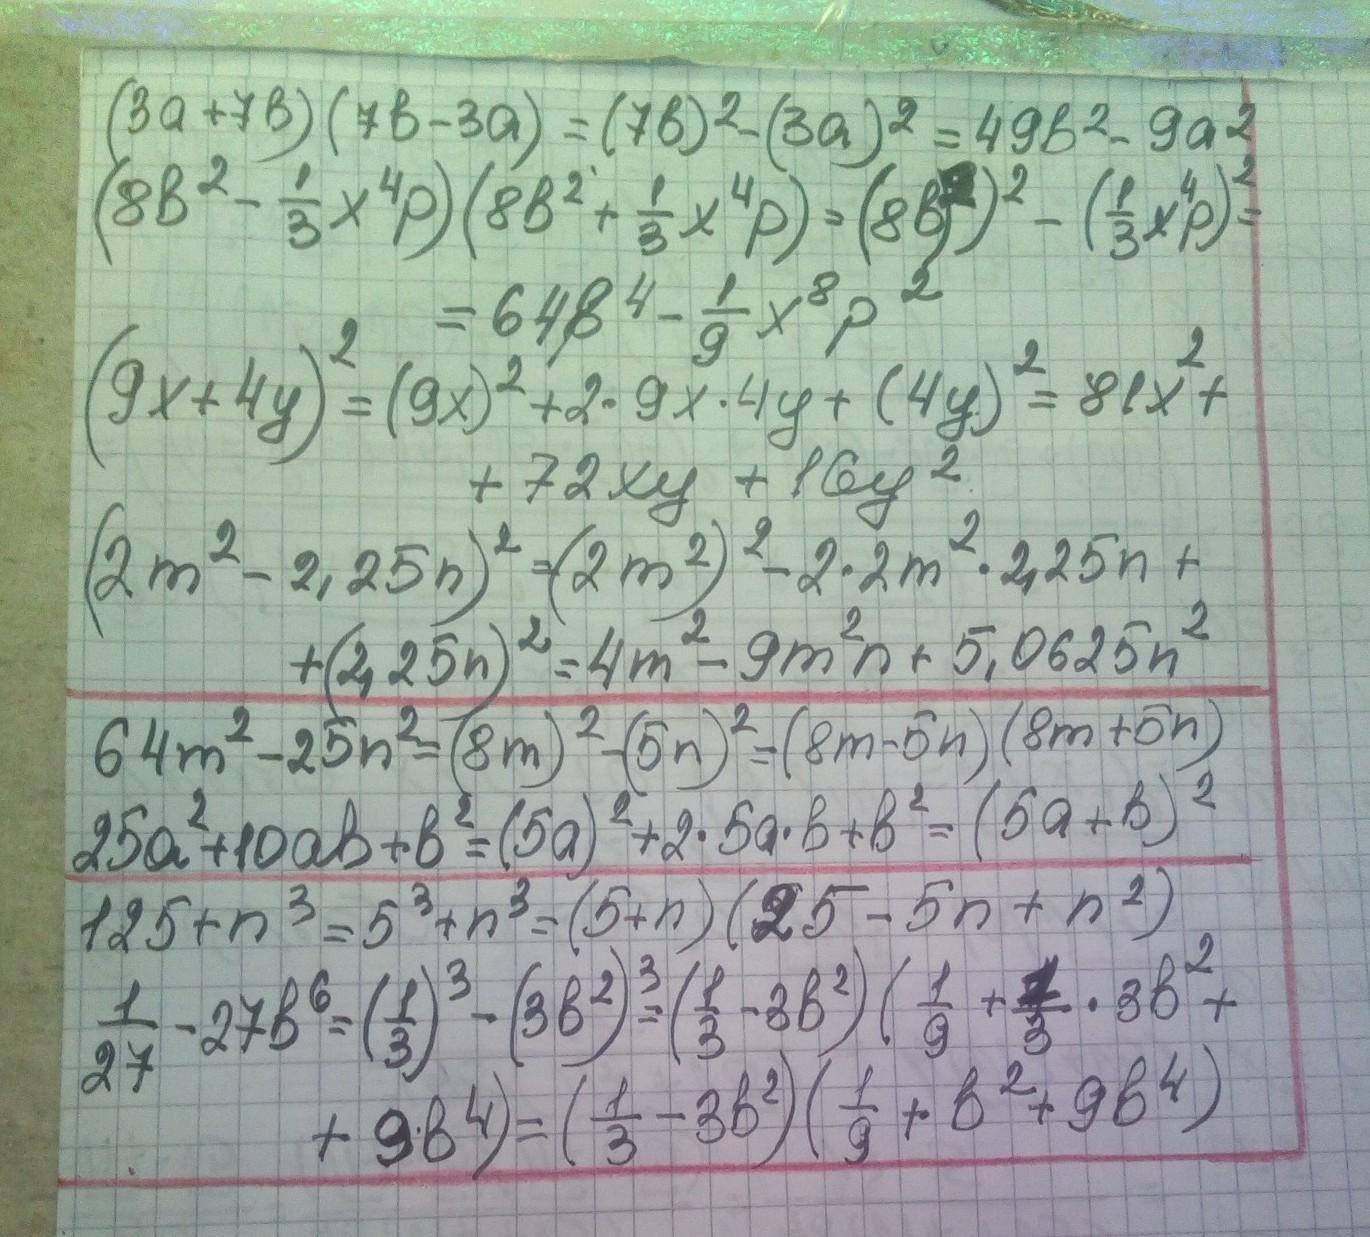 (3a+7b)(7b-3a)=(7b)²-(3a)²=49b²-9a²
(8b²-1/3x⁴p)(8b²+1/3x⁴p)=(8b²)²-(1/3x⁴p)²=
=64b⁴-1/9x⁸p²
(9x+4y)²=(9x)²+2·9x·4y+(4y)²=81x²+
+72xy+16y²
(2m²-2,25n)²=(2m²)²-2·2m²·2,25n+
+(2,25n)²=4m²-9m²n+5,0625n²
64m²-25n²=(8m)²-(5n)²=(8m-5n)(8m+5n)
25a²+10ab+b²=(5a)²+2·5a·b+b²=(5a+b)²
125+n³=5³+n³=(5+n)(25-5n+n²)
1/27-27b⁶=(1/3)³-(3b²)³=(1/3-3b²)(1/9+1/3·3b²+
+9b⁴)=(1/3-3b²)(1/9+b²+9b⁴)